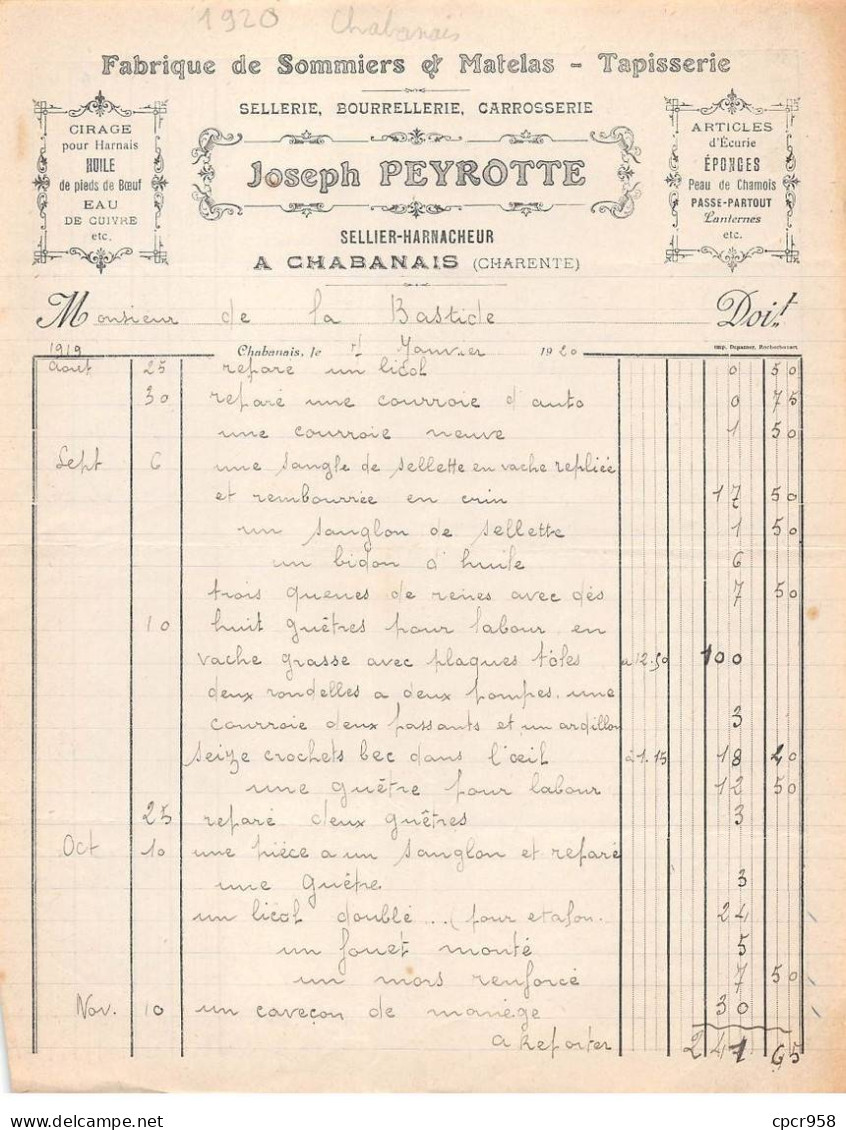 1920 Chabanais
Fabrique de Sommiers & Matelas - Tapisserie
SELLERIE, BOURRELLERIE, CARROSSERIE
CIRAGE
pour Harnais
HUILE
de pieds de Bœuf
EAU
DE CUIVRE
etc.
Joseph PEYROTTE
SELLIER-HARNACHEUR
A CHABANAIS (CHARENTE)
ARTICLES
d'Écurie
ÉPONGES
Peau de Chamois
PASSE-PARTOUT
Lanternes
etc.
Monsieur de la Bastide Doit
1919 Chabanais, le Janvier 1920
Imp. Dupanier, Rochechouart.
Aout 25 reparé un licol 0 50
30 reparé une courroie d'auto 0 75
une courroie neuve 1 50
Sept 6 une sangle de sellette en vache repliée
et rembourrée en crin 17 50
un sanglon de sellette 1 50
un bidon d'huile 6
trois queues de reines avec dés 7 50
10 huit guêtres pour labour en
vache grasse avec plaques tôles a 12.50 100
deux rondelles a deux pompes, une
courroie deux passants et un ardillon 3
seize crochets bec dans l'œil à 1.15 18 40
une guêtre pour labour 12 50
25 reparé deux guêtres 3
Oct 10 une pièce a un sanglon et reparé
une guêtre 3
un licol doublé ... (pour etalon. 24
un fouet monté 5
un mors renforcé 7 50
Nov. 10 un caveçon de manège 30
A Reporter 241 65
delcampe.net
cpcr958